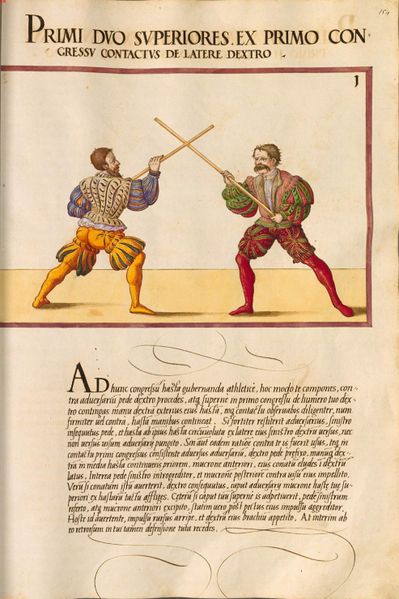 154
PRIMI DVO SVPERIORES. EX PRIMO CON
GRESSV CONTACTVS DE LATERE DEXTRO
1
AD hunc congressũ hasta gubernanda athleticè, hoc modo te compones, con
tra adversariũ pede dextro procedes, atq̃ supernè in primo congressu de humero tuo dex
tro contingas manu dextra exterius eius hastã, eoq̃ contactu observabis diligenter, num
firmiter vel contra, hastã manibus contineat. Si fortiter restiterit adversarius, sinistro
insequutus pede, et hasta ab ipsius hasta circumvoluta ex latere eius sinistro dextrũ versus, rec
versus usum adversariũ pungito. Sin aut eadem ratione contra te is fuerit usus, teq̃ in
contactu primi congressus consistente adversus adversariũ, dextro pede prefixo, manuq̃ dex
tra in media hasta continueris priorem. mucrone anteriori, eius conatũ eludes in dextrũ
latus. Interea pede sinistro introgreditor, et mucronẽ posteriorẽ contra usũ eius impellito.
Verũ si conatum istũ averterit, dextro consequutus, caput adversarij mucrone hastę tuę su
periori ex hastarũ tactu affliges. Ceterũ si caput tuũ supernè is adpetiverit, pede sinistrum
referto, atq̃ mucrone anteriori excipito, statim vero post pectus eius impulsu aggreditor.
Hoste id avertente, impulsũ rursus arripe, et dextrũ eius brachiũ appetito. At interim ab
eo retrorsum in tui tamen defensione tuta recedes.